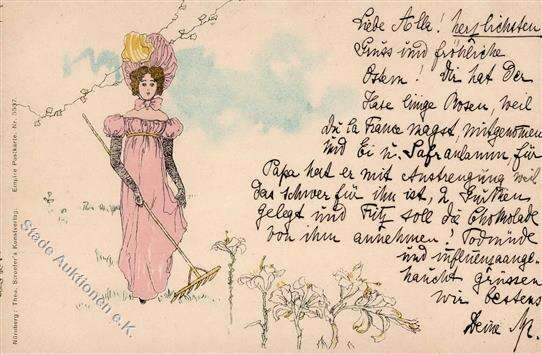 Liebe Alle! herzlichsten
Gruss und fröhliche
Ostern! Dir hat der
Hase einige Rosen, weil
du la France magst, mitgenommen
und Ei u. für
Papa hat er mit Anstrengung weil
das schwer für ihn ist, 2
gelegt und Fritz soll die Chokolade
von ihm annehmen! Todmüde
und influenzaange-
haucht grüssen
wir bestens
Deine M.
Nürnberg: Theo. Stroefer's Kunstverlag. Empire Postkarte. Nr.
Stade Auktionen e.K.